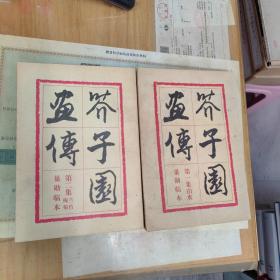 芥子園
畫傳
第二集
巢勛臨本
芥子園
畫傳
第一集山水
巢勛臨本